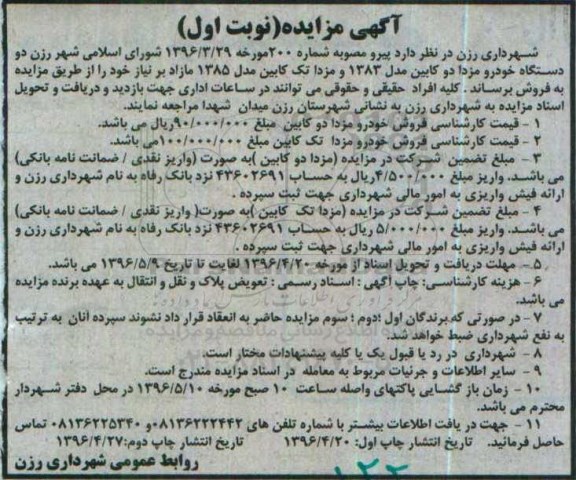 آگهی مزایده(نوبت اول)
شهرداری رزن در نظر دارد پیرو مصوبه شماره ۲۰۰مورخه ۱۳۹۶/۳/۲۹ شورای اسلامی شهر رزن دو
دستگاه خودرو مزدا دو کابین مدل ۱۳۸۳ و مزدا تک کابین مدل ۱۳۸۵ مازاد بر نیاز خود را از طریق مزایده
به فروش برساند . کلیه افراد حقیقی و حقوقی می توانند در ساعات اداری جهت بازدید و دریافت و تحویل
اسناد مزایده به شهرداری رزن به نشانی شهرستان رزن میدان شهدا مراجعه نمایند.
۱ - قیمت کارشناسی فروش خودرو مزدا دو کابین مبلغ ۹۰/۰۰۰/۰۰۰ریال می باشد.
۲ - قیمت کارشناسی فروش خودرو مزدا تک کابین مبلغ ۱۰۰/۰۰۰/۰۰۰می باشد.
۳ - مبلغ تضمین شرکت در مزایده (مزدا دو کابین )به صورت (واریز نقدی / ضمانت نامه بانکی)
می باشد. واریز مبلغ ۴/۵۰۰/۰۰۰ریال به حساب ۴۳۶۰۲۶۹۱ نزد بانک رفاه به نام شهرداری رزن و
ارائه فیش واریزی به امور مالی شهرداری جهت ثبت سپرده .
۴ - مبلغ تضمین شرکت در مزایده (مزدا تک کابین )به صورت( واریز نقدی / ضمانت نامه بانکی)
می باشد. واریز مبلغ ۵/۰۰۰/۰۰۰ ریال به حساب ۴۳۶۰۲۶۹۱ نزد بانک رفاه به نام شهرداری رزن و
ارائه فیش واریزی به امور مالی شهرداری جهت ثبت سپرده .
۵- مهلت دریافت و تحویل اسناد از مورخه ۱۳۹۶/۴/۲۰ لغایت تا تاریخ ۱۳۹۶/۵/۹ می باشد.
۶ - هزینه کارشناسی: چاپ آگهی : اسناد رسمی : تعویض پلاک و نقل و انتقال به عهده برنده مزایده
می باشد.
۷- در صورتی که برندگان اول :دوم : سوم مزایده حاضر به انعقاد قرار داد نشوند سپرده آنان به ترتیب
به نفع شهرداری ضبط خواهد شد.
۸ - شهرداری در رد یا قبول یک یا کلیه پیشنهادات مختار است.
۹ - سایر اطلاعات و جزئیات مربوط به معامله در اسناد مزایده مندرج است.
۱۰ - زمان باز گشایی پاکتهای واصله ساعت ۱۰ صبح مورخه ۱۳۹۶/۵/۱۰ در محل دفتر شهردار
محترم می باشد.
۱۱ - جهت در یافت اطلاعات بیشتر با شماره تلفن های ۰۸۱۳۶۲۲۲۴۴۲و ۰۸۱۳۶۲۲۵۳۴۰ تماس
حاصل فرمائید. تاریخ انتشار چاپ اول: ۱۳۹۶/۴/۲۰ تاریخ انتشار چاپ دوم:۱۳۹۶/۴/۲۷
روابط عمومی شهرداری رزن